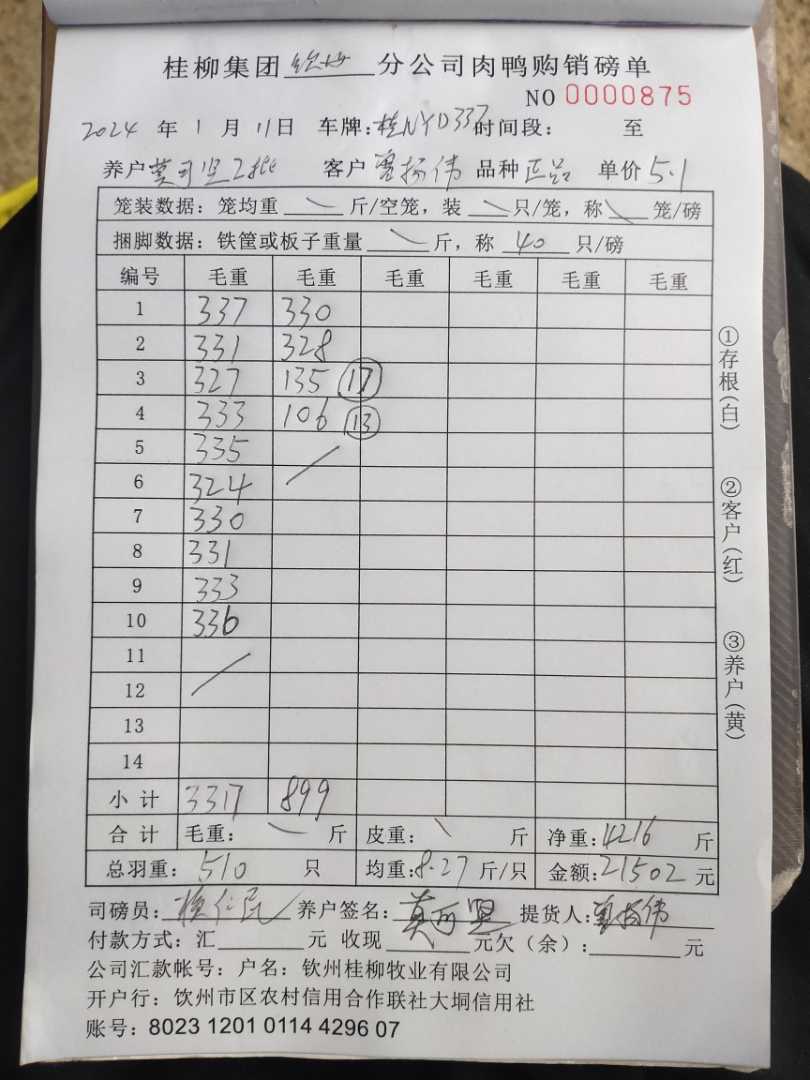 桂柳集团 钦州 分公司肉鸭购销磅单
NO 0000875
2024 年 1 月 11 日 车牌：桂NYD337 时间段： 至
养户 莫可坚 客户 扬伟 品种 正品 单价 5.1
笼装数据：笼均重 斤/空笼，装 只/笼，称 笼/磅
捆脚数据：铁筐或板子重量 斤，称 40 只/磅
编号 毛重 毛重 毛重 毛重 毛重 毛重
1 337 330
2 331 328
3 327 135 17
4 333 106 13
5 335
6 324
7 330
8 331
9 333
10 336
11
12
13
14
小 计 3317 899
合 计 毛重： 斤 皮重： 斤 净重：4216 斤
总羽重：510 只 均重：8.27 斤/只 金额：21502 元
司磅员： 仁民 养户签名：莫可坚 提货人： 扬伟
付款方式：汇 元 收现 元欠（余）： 元
公司汇款帐号：户名：钦州桂柳牧业有限公司
开户行：饮州市区农村信用合作联社大垌信用社
账号：8023 1201 0114 4296 07
①存根(白)
②客户(红)
③养户(黄)